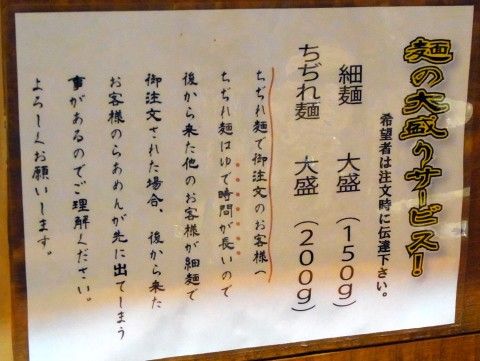 麺の大盛りサービス!
希望者は注文時に伝達下さい。
細麺 大盛(150g)
ちぢれ麺 大盛(200g)
ちぢれ麺で御注文のお客様へ
ちぢれ麺はゆで時間が長いので
後から来た他のお客様が細麺で
御注文された場合、後から来た
お客様のらあめんが先に出てしまう
事があるのでご理解ください。
よろしくお願いします。